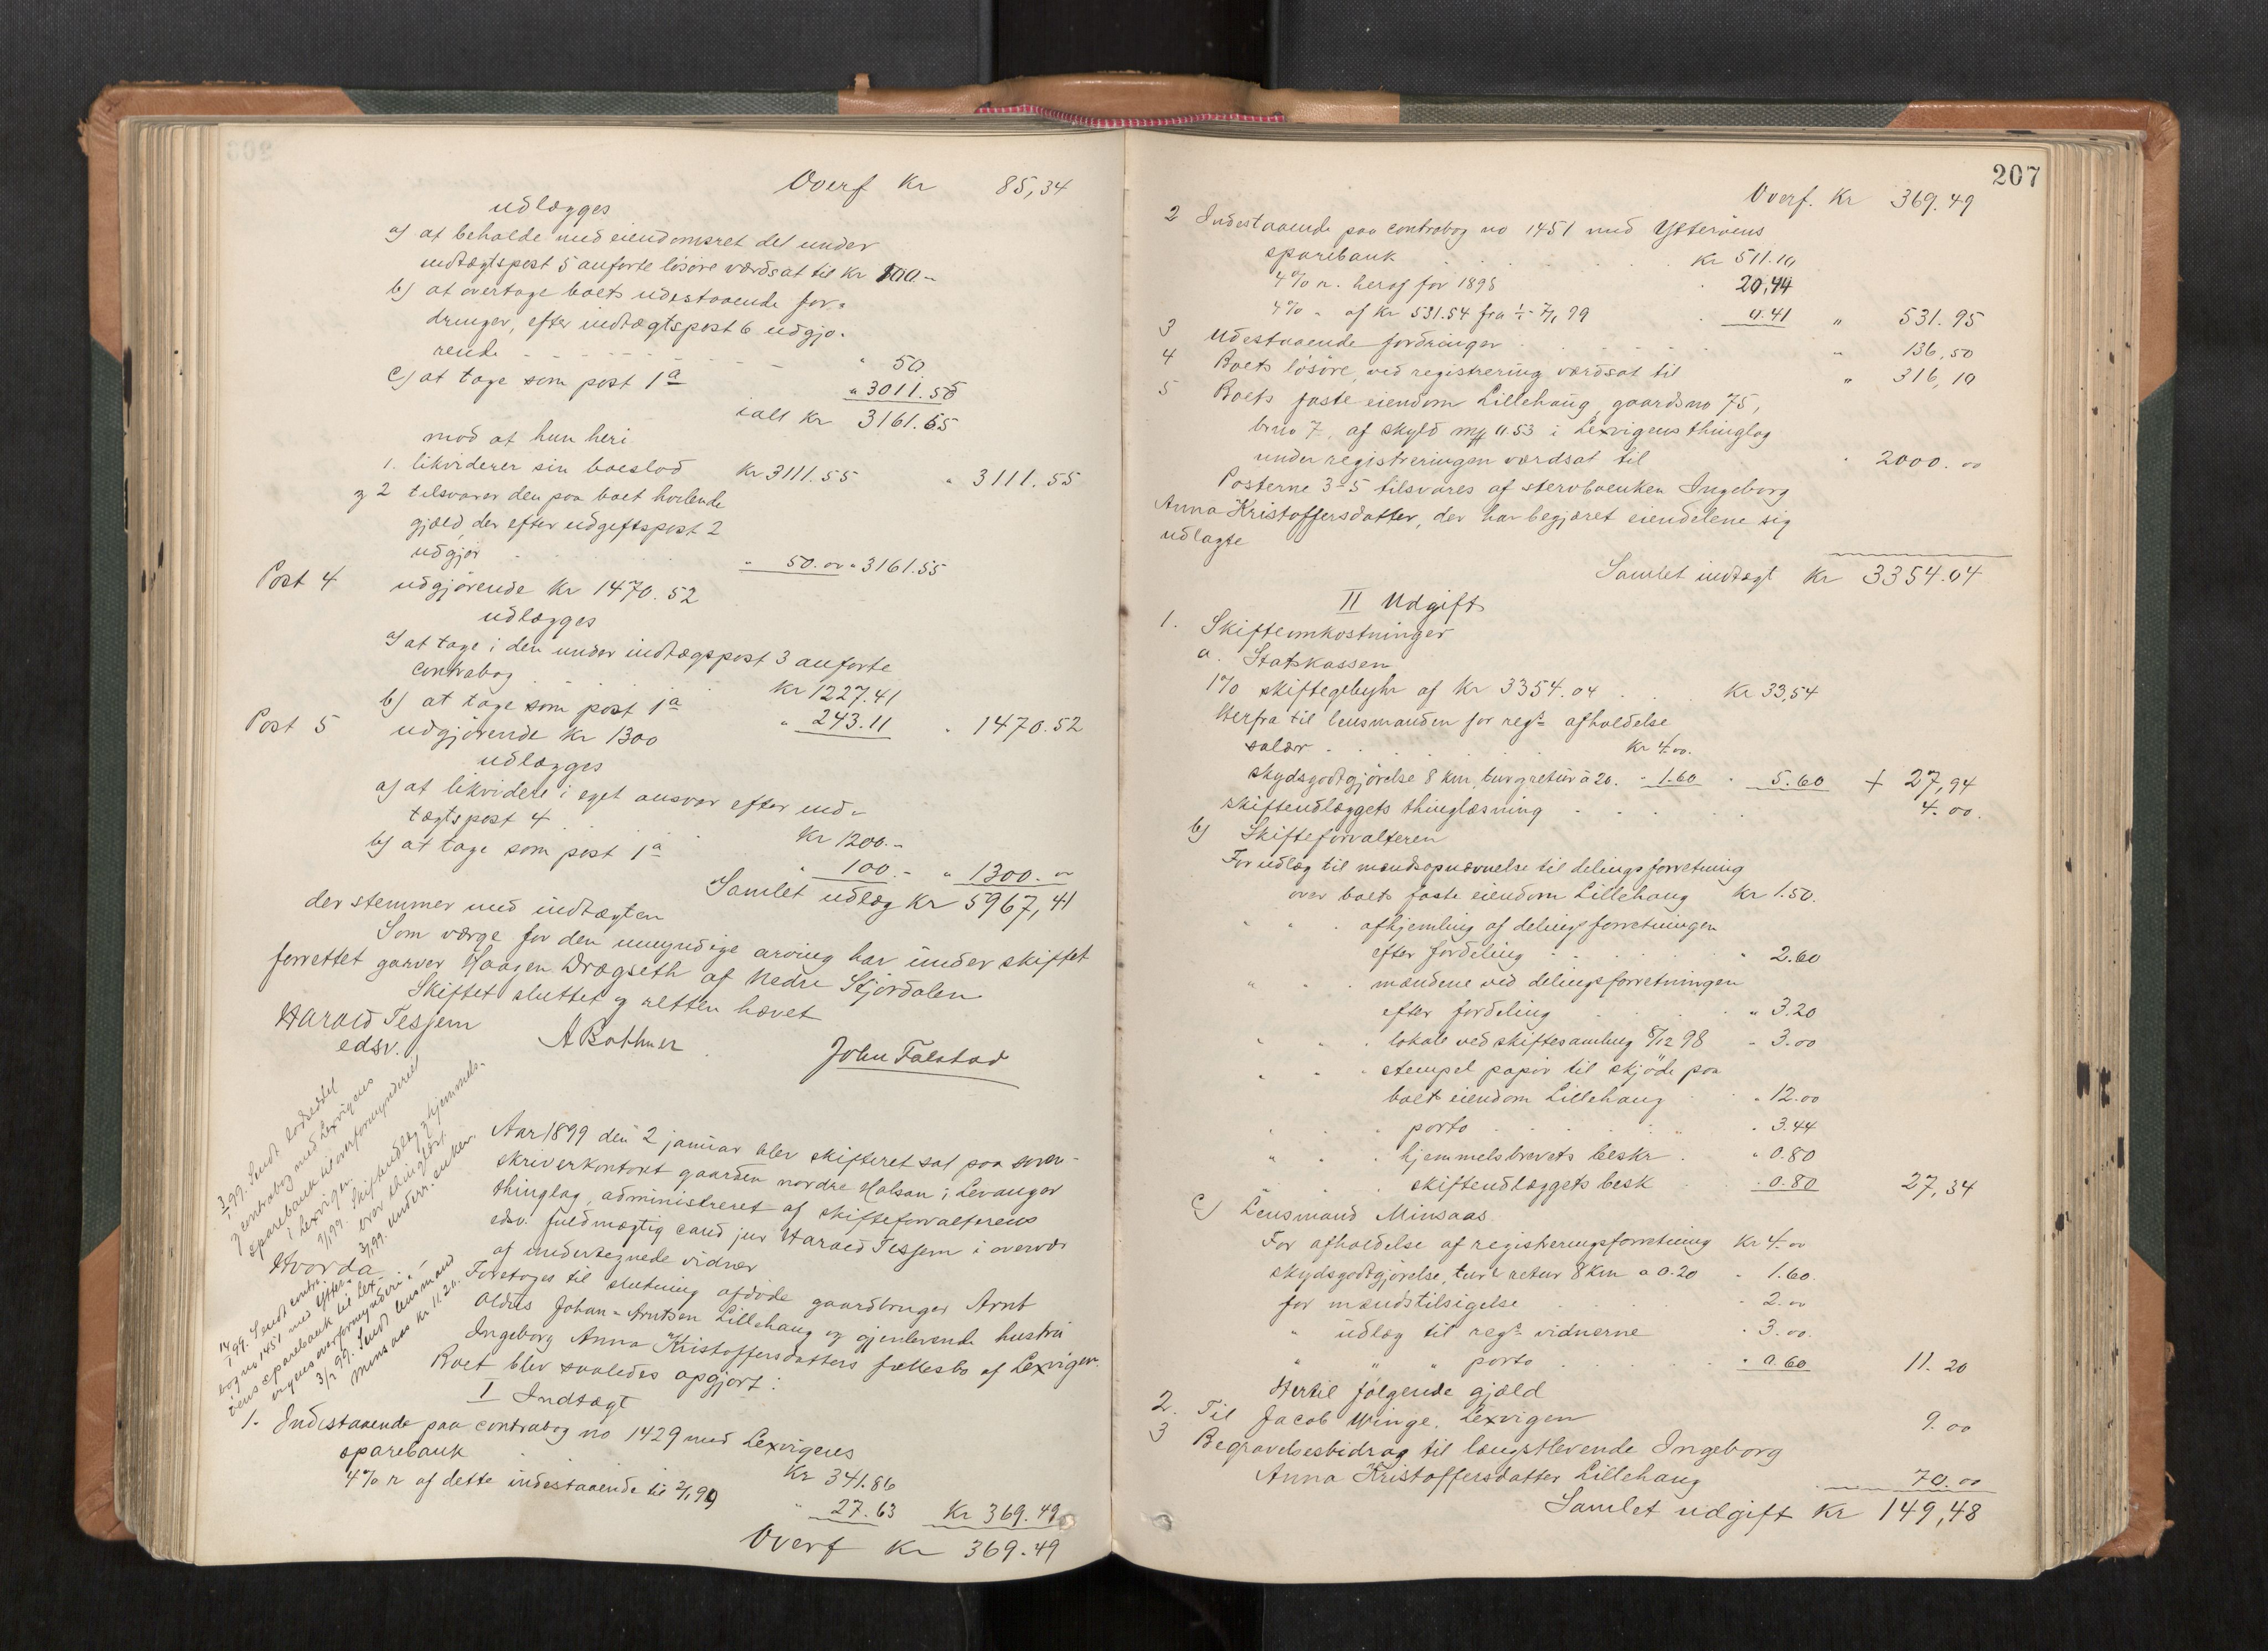 Overf Kr 85,34
udlægges
a) at beholde med eiendomsret det under
indtægtspost 5 anførte løsøre værdsat til Kr 100 –
b) at overtage boets udestaaende for-
dringer, efter indtægtspost 6 udgjø-
rende " 50
c) at tage som post 1a " 3011.55
ialt Kr 3161.55
mod at hun heri
1. likviderer sin boeslod Kr 3111.55 " 3111.55
og 2 tilsvarer den paa boet hvilende
gjæld, der efter udgiftspost 2
udgjør " 50.00 " 3161.55
Post 4 udgjørende Kr 1470.52
udlægges
a) at tage i den under indtægspost 3 anførte
contrabog Kr 1227.41
b) at tage som post 1a " 243.11 " 1470.52
Post 5 udgjørende Kr 1300
udlægges
a) at likvidere i eget ansvar efter ind-
tægtspost 4 Kr 1200.–
b) at tage som post 1a " 100.– " 1300.00
Samlet udlæg Kr 5967,41
der stemmer med indtægten
Som værge for den umyndige arving har under skiftet
forrettet garver Haagen Drægseth af Nedre Stjørdalen
Skiftet sluttet og retten hævet
Harald Tessem
edsv.
A Bothner
John Falstad
Aar 1899 den 2 januar blev skifteret sat paa soren-
skriverkontoret gaarden nordre Halsan i Levanger
thinglag, administreret af skifteforvalterens
edsv. fuldmægtig cand jur Harald Tessem i overvær
af undertegnede vidner
Foretoges til slutning afdøde gaardbruger Arnt
Oldus Johan-Arntsen Lillehaug og gjenlevende hustru
Ingeborg Anna Kristoffersdatters fællesbo af Lexvigen.
Boet blev saaledes opgjort:
I Indtægt
1. Indestaaende paa contrabog no 1429 med Lexvigens
sparebank Kr 341.86
4% r af dette indestaaende til 2/1 99 " 27.63 Kr 369.49
Overf Kr 369.49
3/1 99. Sendt lodseddel
og contrabog med Lexvigens
sparebank til overformynderiet
i Lexvigen.
9/1 99. Skifteudlæg og hjemmels-
brev thinglæst.
3/1 99. underr. enken.
Hvorda
14/1 99. Sendt contra-
bog no 1451 med Ytter-
øens sparebank til Lex-
vigens overformynderi.
3/2 99. Sendt lensmand
Minsaas Kr 11.20.
207
Overf. Kr 369.49
2 Indestaaende paa contrabog no 1451 med Ytterøens
sparebank Kr 511.10
4% r. heraf for 1898 " 20,44
4% " af Kr 531.54 fra 1/1 - 7/1 99 0.41 " 531.95
3 Udestaaende fordringer " 136,50
4 Boets løsøre, ved registrering værdsat til " 316,10
5 Boets faste eiendom Lillehaug, gaardsno 75,
brno 7, af skyld mk 0.53 i Lexvigens thinglag
under registreringen værdsat til " 2000.00
Posterne 3-5 tilsvares af stervboenken Ingeborg
Anna Kristoffersdatter, der har begjæret eiendelene sig
udlagte
Samlet indtægt Kr 3354.04
II Udgift
1. Skifteomkostninger
a. Statskassen
1% skiftegebyhr af Kr 3354.04 Kr 33,54
Herfra til lensmanden for regs afholdelse
salær Kr 4.00.
skydsgodtgjørelse 8 km, tur og retur à 20. " 1.60 " 5.60 + 27,94
skifteudlæggets thinglæsning 4.00.
b) Skifteforvalteren
For udlæg til mændsopnævnelse til delingsforretning
over boets faste eiendom Lillehaug Kr 1.50.
" " " afhjemling af delingsforretningen
efter fordeling " 2.60
" " " mændene ved delingsforretningen
efter fordeling " 3.20
" " " lokale ved skiftesamling 8/12 98 " 3.00
" " " stempel papir til skjøde paa
boets eiendom Lillehaug " 12.00
" " " porto " 3.44
" " " hjemmelsbrevets beskr. " 0.80
" " " skifteudlæggets besk " 0.80 27,34
c) Lensmand Minsaas
For afholdelse af registreringsforretning Kr 4.00
skydsgodtgjørelse, tur & retur 8 km à 0.20 " 1.60.
for mændstilsigelse " 2.00
" udlæg til regs vidnerne " 3.00.
" " " porto " 0.60 11.20
Hertil følgende gjæld
2. Til Jacob Winge, Lexvigen 9.00
3 Begravelsesbidrag til længstlevende Ingeborg
Anna Kristoffersdatter Lillehaug 70.00
Samlet udgift Kr 149,48